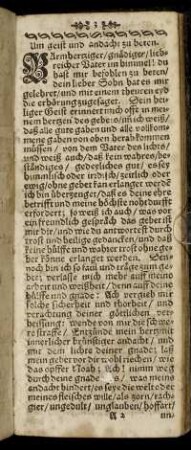 Um geist und andacht zu beten.
Barmherziger/ gnädiger/ lieb-
reicher Vater im himmel! du
hast mir befohlen zu beten/
dein lieber Sohn hat es mir
gelehret/ und mit einem theuren eyd
die erhörung zugesaget. Dein hei-
liger Geist erinnert mich offt in mei-
nem herzen des gebets/ ich weiß/
daß alle gute gaben und alle vollkom-
mene gaben von oben herab kommen
müssen/ von dem Vater des lichts/
und weiß auch/ daß kein wahres/ be-
ständiges/ gedeyliches gut/ es sey
himmlisch oder irdisch/ zeitlich oder
ewig/ ohne gebet kan erlanget werden
ich bin überzeuget/ daß es deine ehre
betrifft und meine höchste nohtdurfft
erfordert/ so weiß ich auch/ was vor
ein freundlich gespräch das gebet ist
mit dir/ und wie du antwortest durch
trost und heilige gedancken/ und daß
keine hülffe und wahrer trost ohne ge-
bet könne erlanget werden. Den-
noch bin ich so faul und träge zum ge-
bet; verlasse mich mehr auff meine
arbeit und weißheit/ denn auff deine
hülffe und gnade: Ach vergieb mir
solche sicherheit und thorheit/ und
verachtung deiner göttlichen ver-
heissung: wende von mir die schwe-
re straffe/ Entzünde mein hertz mit
innerlicher brünstiger andacht/ und
mit dem liechte deiner gnade/ laß
mein gebet vor dir wohl riechen/ wie
das opffer Noah; Ach! nimm weg
durch deine gnade was meine
andacht hindert/ es seye die welt oder
meines fleisches wille/ als zorn/ rach-
gier/ ungedult/ unglauben/ hoffart/